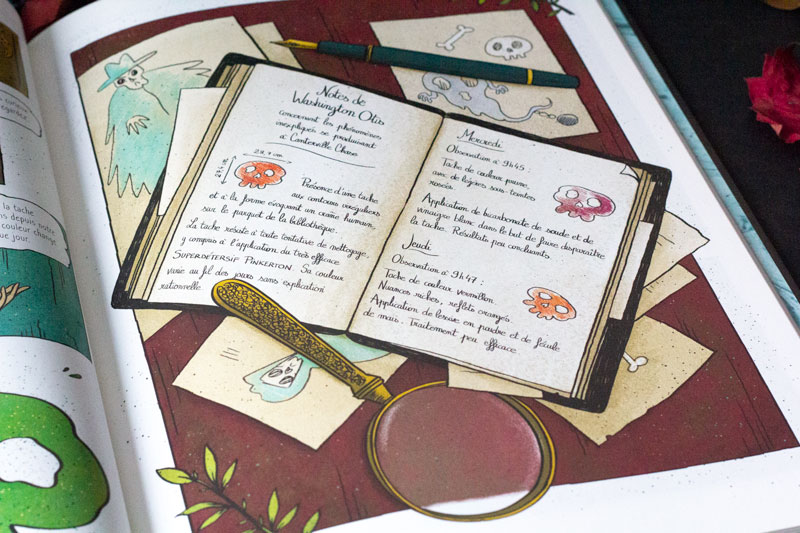 la tache
depuis notre
couleur change
que jour.
Notes de
Washington Otis
concernant les phénomènes
inexpliqués se produisant
à Canterville Chase
27,7 cm
Présence d'une tache
aux contours irréguliers
et à la forme évoquant un crâne humain,
sur le parquet de la bibliothèque.
La tache résiste à toute tentative de nettoyage,
y compris à l'application du très efficace
SUPERDÉTERSIF PINKERTON. Sa couleur
varie au fil des jours sans explication
rationnelle.
Mercredi
Observation à 9h45 :
Tache de couleur prune,
avec de légères sous-teintes
rosées.
Application de bicarbonate de soude et de
vinaigre blanc dans le but de faire disparaître
la tache. Résultats peu concluants.
Jeudi
Observation à 9h47 :
Tache de couleur vermillon.
Nuances riches, reflets orangés.
Application de lessive en poudre et de fécule
de maïs. Traitement peu efficace.